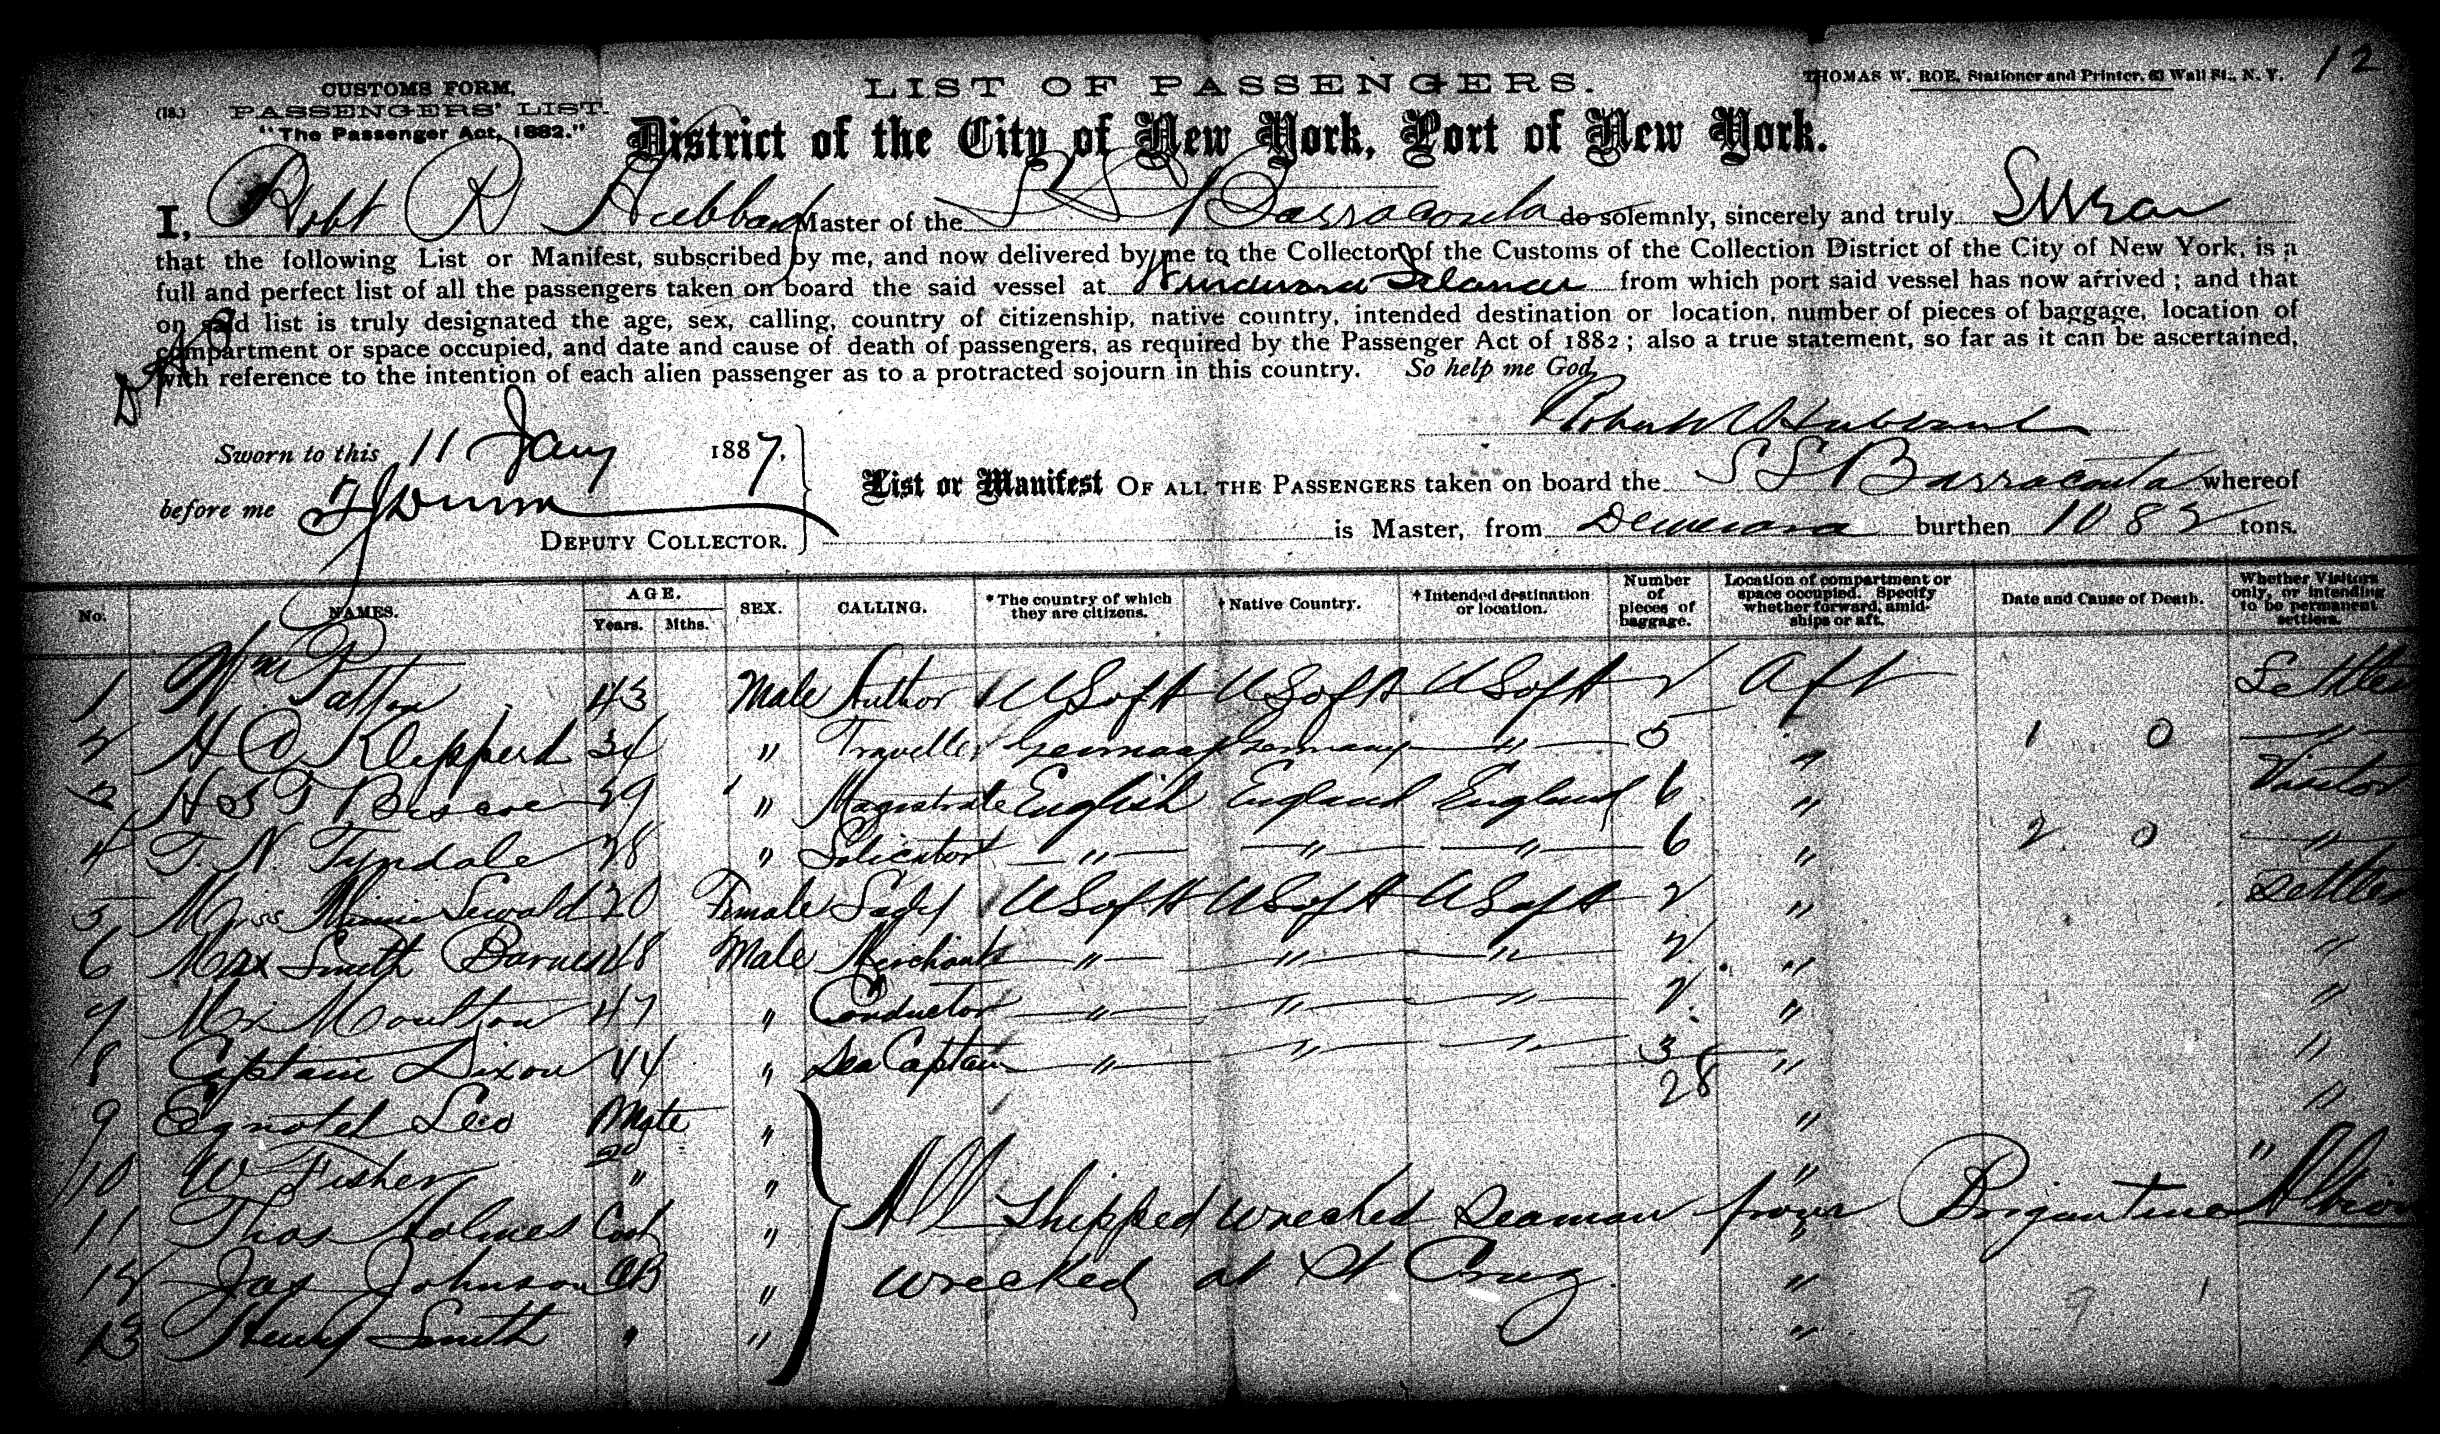 12
CUSTOMS FORM, LIST OF PASSENGERS. THOMAS W. ROE, Stationer and Printer, 63 Wall St., N. Y.
(18.) PASSENGERS' LIST.
"The Passenger Act, 1882."
District of the City of New York, Port of New York.
I, Robt R Hubbard Master of the S S Barracouta do solemnly, sincerely and truly Swear
that the following List or Manifest, subscribed by me, and now delivered by me to the Collector of the Customs of the Collection District of the City of New York, is a
full and perfect list of all the passengers taken on board the said vessel at Windward Islands from which port said vessel has now arrived ; and that
on said list is truly designated the age, sex, calling, country of citizenship, native country, intended destination or location, number of pieces of baggage, location of
compartment or space occupied, and date and cause of death of passengers, as required by the Passenger Act of 1882 ; also a true statement, so far as it can be ascertained,
with reference to the intention of each alien passenger as to a protracted sojourn in this country. So help me God,
Hubbard
Sworn to this 11 Jany 1887,
before me
DEPUTY COLLECTOR.
List or Manifest OF ALL THE PASSENGERS taken on board the S S Barracouta whereof
is Master, from Demerara burthen 1082 tons.
No. NAMES. AGE. Years. Mths. SEX. CALLING. * The country of which they are citizens. † Native Country. † Intended destination or location. Number of pieces of baggage. Location of compartment or space occupied. Specify whether forward, amidships or aft. Date and Cause of Death. Whether Visitors only, or intending to be permanent settlers.
1 Wm Patton 43 Male Author U S of A U S of A U S of A 2 Aft Settler
2 H A Klippert 34 " Traveller Germany Germany " 5 " 1 0 "
3 H S T Biscoe 29 " Magistrate English England England 6 " Visitor
4 T. N. Tyndale 28 " Solicitor " " " 6 " 2 0 "
5 Miss Minnie Sewald 20 Female Lady U S of A U S of A U S of A 2 " Settler
6 Max Smith Barnes 28 Male Merchant " " " 2 " "
7 Mr Moulton 47 " Conductor " " " 2 " "
8 Captain Dixon 44 " Sea Captain " " " 3 " "
28
9 Leo Mate " " "
10 W Fisher 2d " " " "
11 Thos Holmes Cook " All Shipped wrecked Seaman from Brigantine Albion
12 Jas Johnson AB " wrecked at St Cruz. "
13 Henry Smith " " "